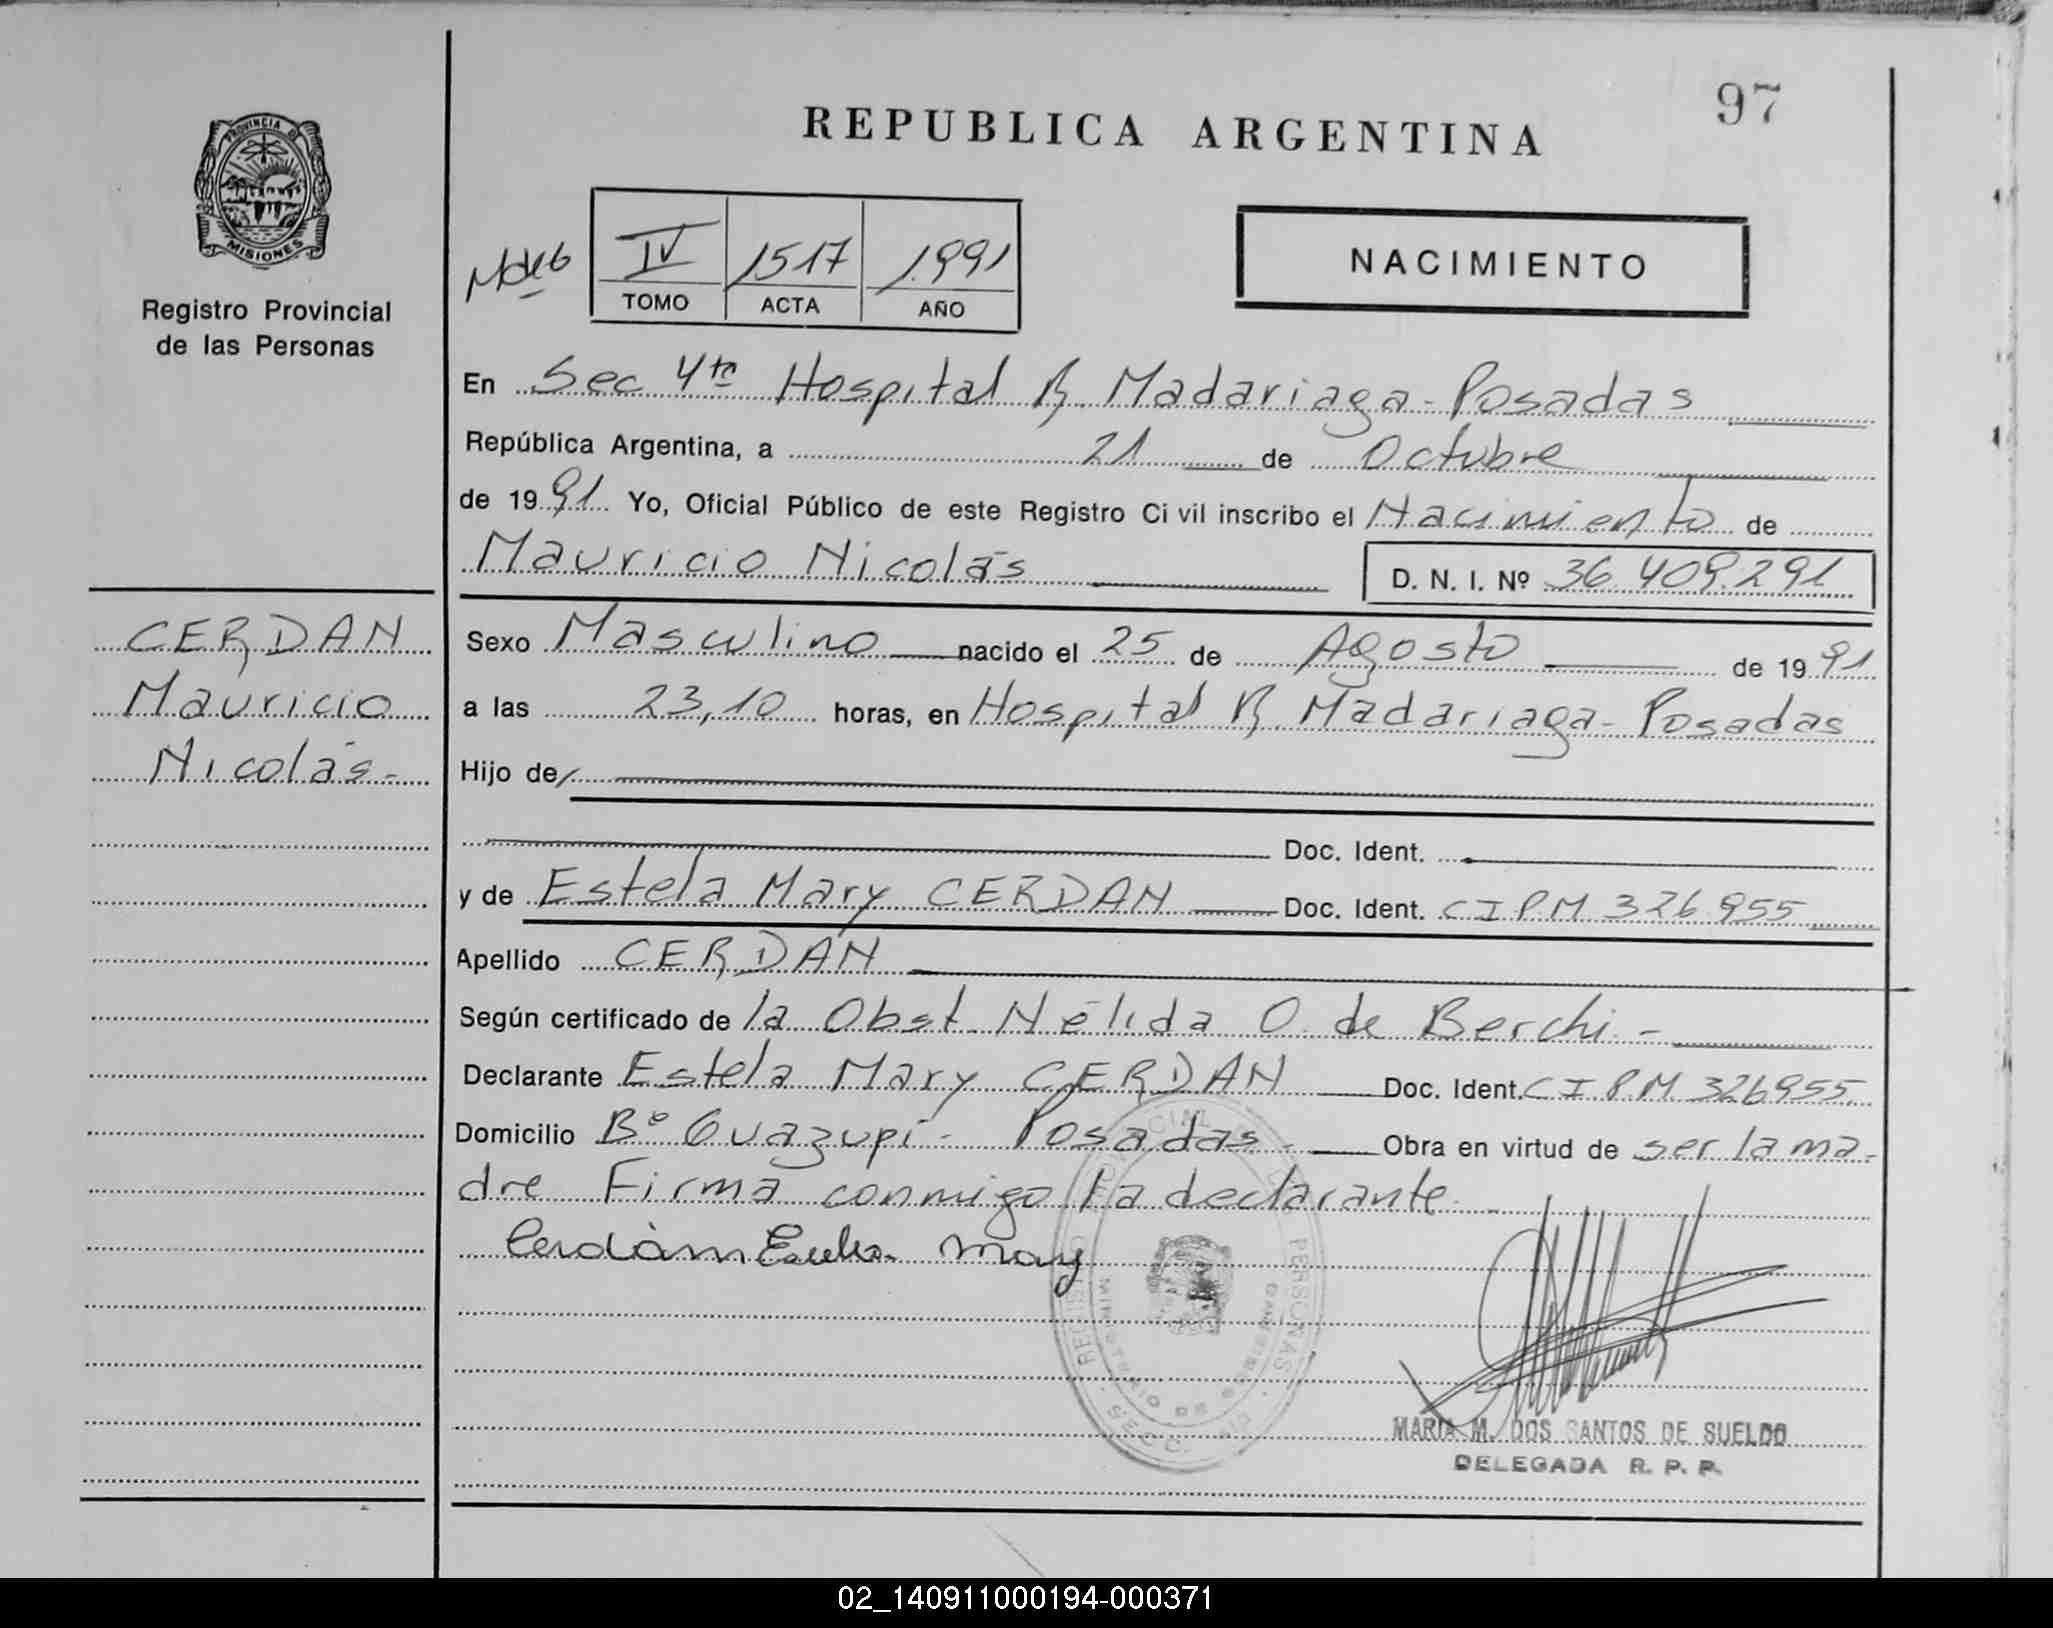 97
REPUBLICA ARGENTINA
PROVINCIA DE
MISIONES
Registro Provincial
de las Personas
IV 1517 1.991
TOMO ACTA AÑO
NACIMIENTO
En Sec 4ta Hospital R Madariaga - Posadas
República Argentina, a 21 de Octubre
de 1991. Yo, Oficial Público de este Registro Civil inscribo el Nacimiento de
Mauricio Nicolás
D. N. I. Nº 36.409.291
CERDAN
Mauricio
Nicolás-
Sexo Masculino nacido el 25 de Agosto de 1991
a las 23,10 horas, en Hospital R Madariaga - Posadas
Hijo de
Doc. Ident.
y de Estela Mary CERDAN Doc. Ident. C I P.M 326.955
Apellido CERDAN
Según certificado de la Obst. Nélida O. de Berchi -
Declarante Estela Mary CERDAN Doc. Ident. C I P.M. 326955.
Domicilio Bº Guazupi - Posadas - Obra en virtud de ser la ma-
dre Firma conmigo la declarante.
Cerdàn Estela Mary
MARIA M. DOS SANTOS DE SUELDO
DELEGADA R. P. P.
02_140911000194-000371